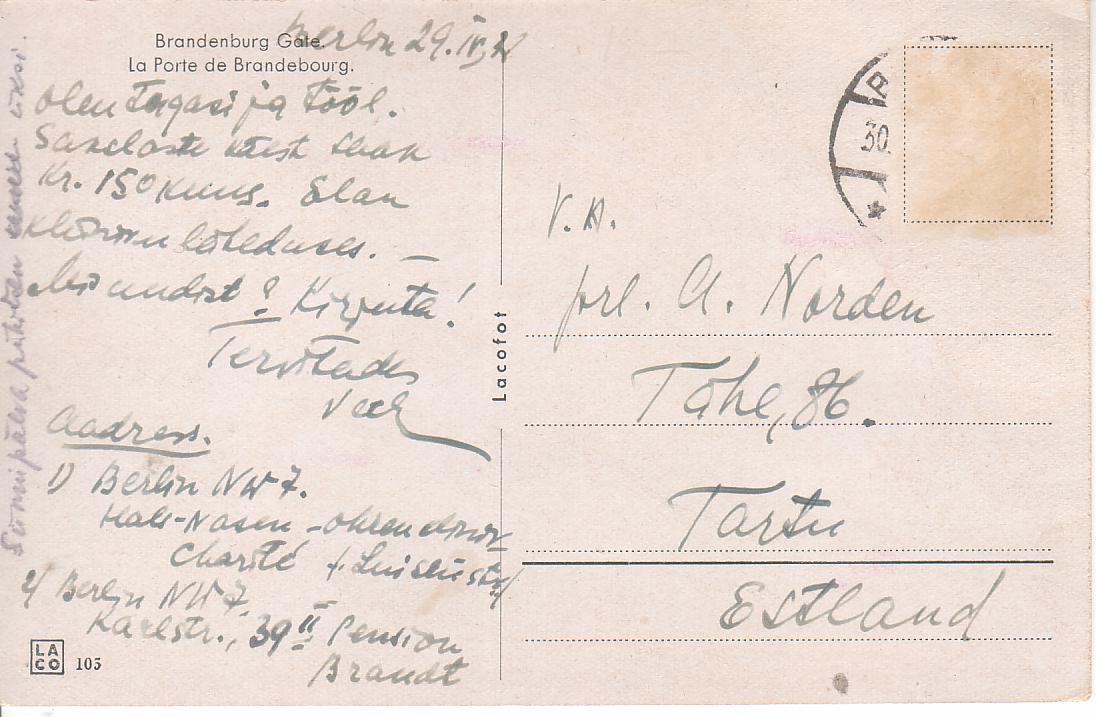 Brandenburg Gate.
La Porte de Brandebourg.
Berlin 29. IV,
Olen tagasi ja tööl.
Sakslaste käest saan
Kr. 150 kuus. Elan
kliiniku läheduses. —
Mis uudist? Kirjuta!
Tervitades
Aadress.
1) Berlin NW 7.
Hals-Nasen-Ohren
Charité (Luisenstr)
2) Berlin NW 7.
Karlstr., 39 II Pension
Brandt
Sünnipäeva
LACO
105
Lacofot
30.
V. A.
prl. A. Norden
Tähe, 86.
Tartu
Estland